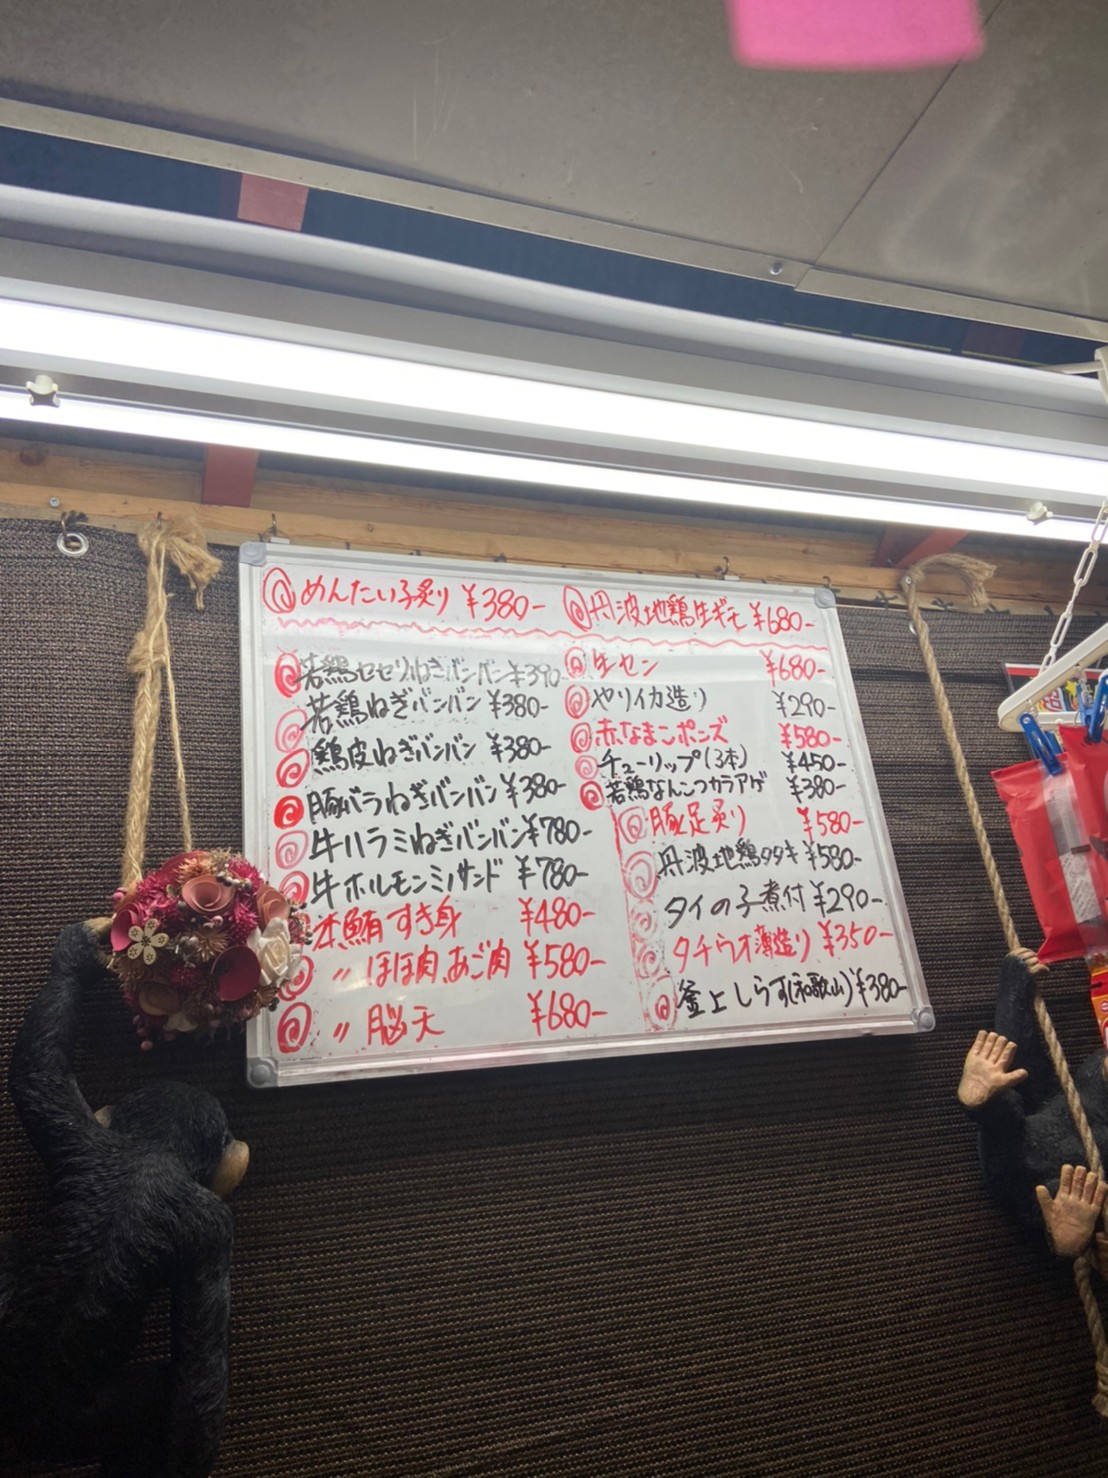 めんたい子炙り ¥380-
丹波地鶏生ギモ ¥680-
若鶏セセリねぎバンバン ¥390-
若鶏ねぎバンバン ¥380-
鶏皮ねぎバンバン ¥380-
豚バラねぎバンバン ¥380-
牛ハラミねぎバンバン ¥780-
牛ホルモンミノサンド ¥780-
本鮪すき身 ¥480-
〃 ほほ肉、あご肉 ¥580-
〃 脳天 ¥680-
生セン ¥680-
やりイカ造り ¥290-
赤なまこポンズ ¥580-
チューリップ(3本) ¥450-
若鶏なんこつカラアゲ ¥380-
豚足炙り ¥580-
丹波地鶏タタキ ¥580-
タイの子煮付 ¥290-
タチウオ薄造り ¥350-
釜上しらす(和歌山) ¥380-